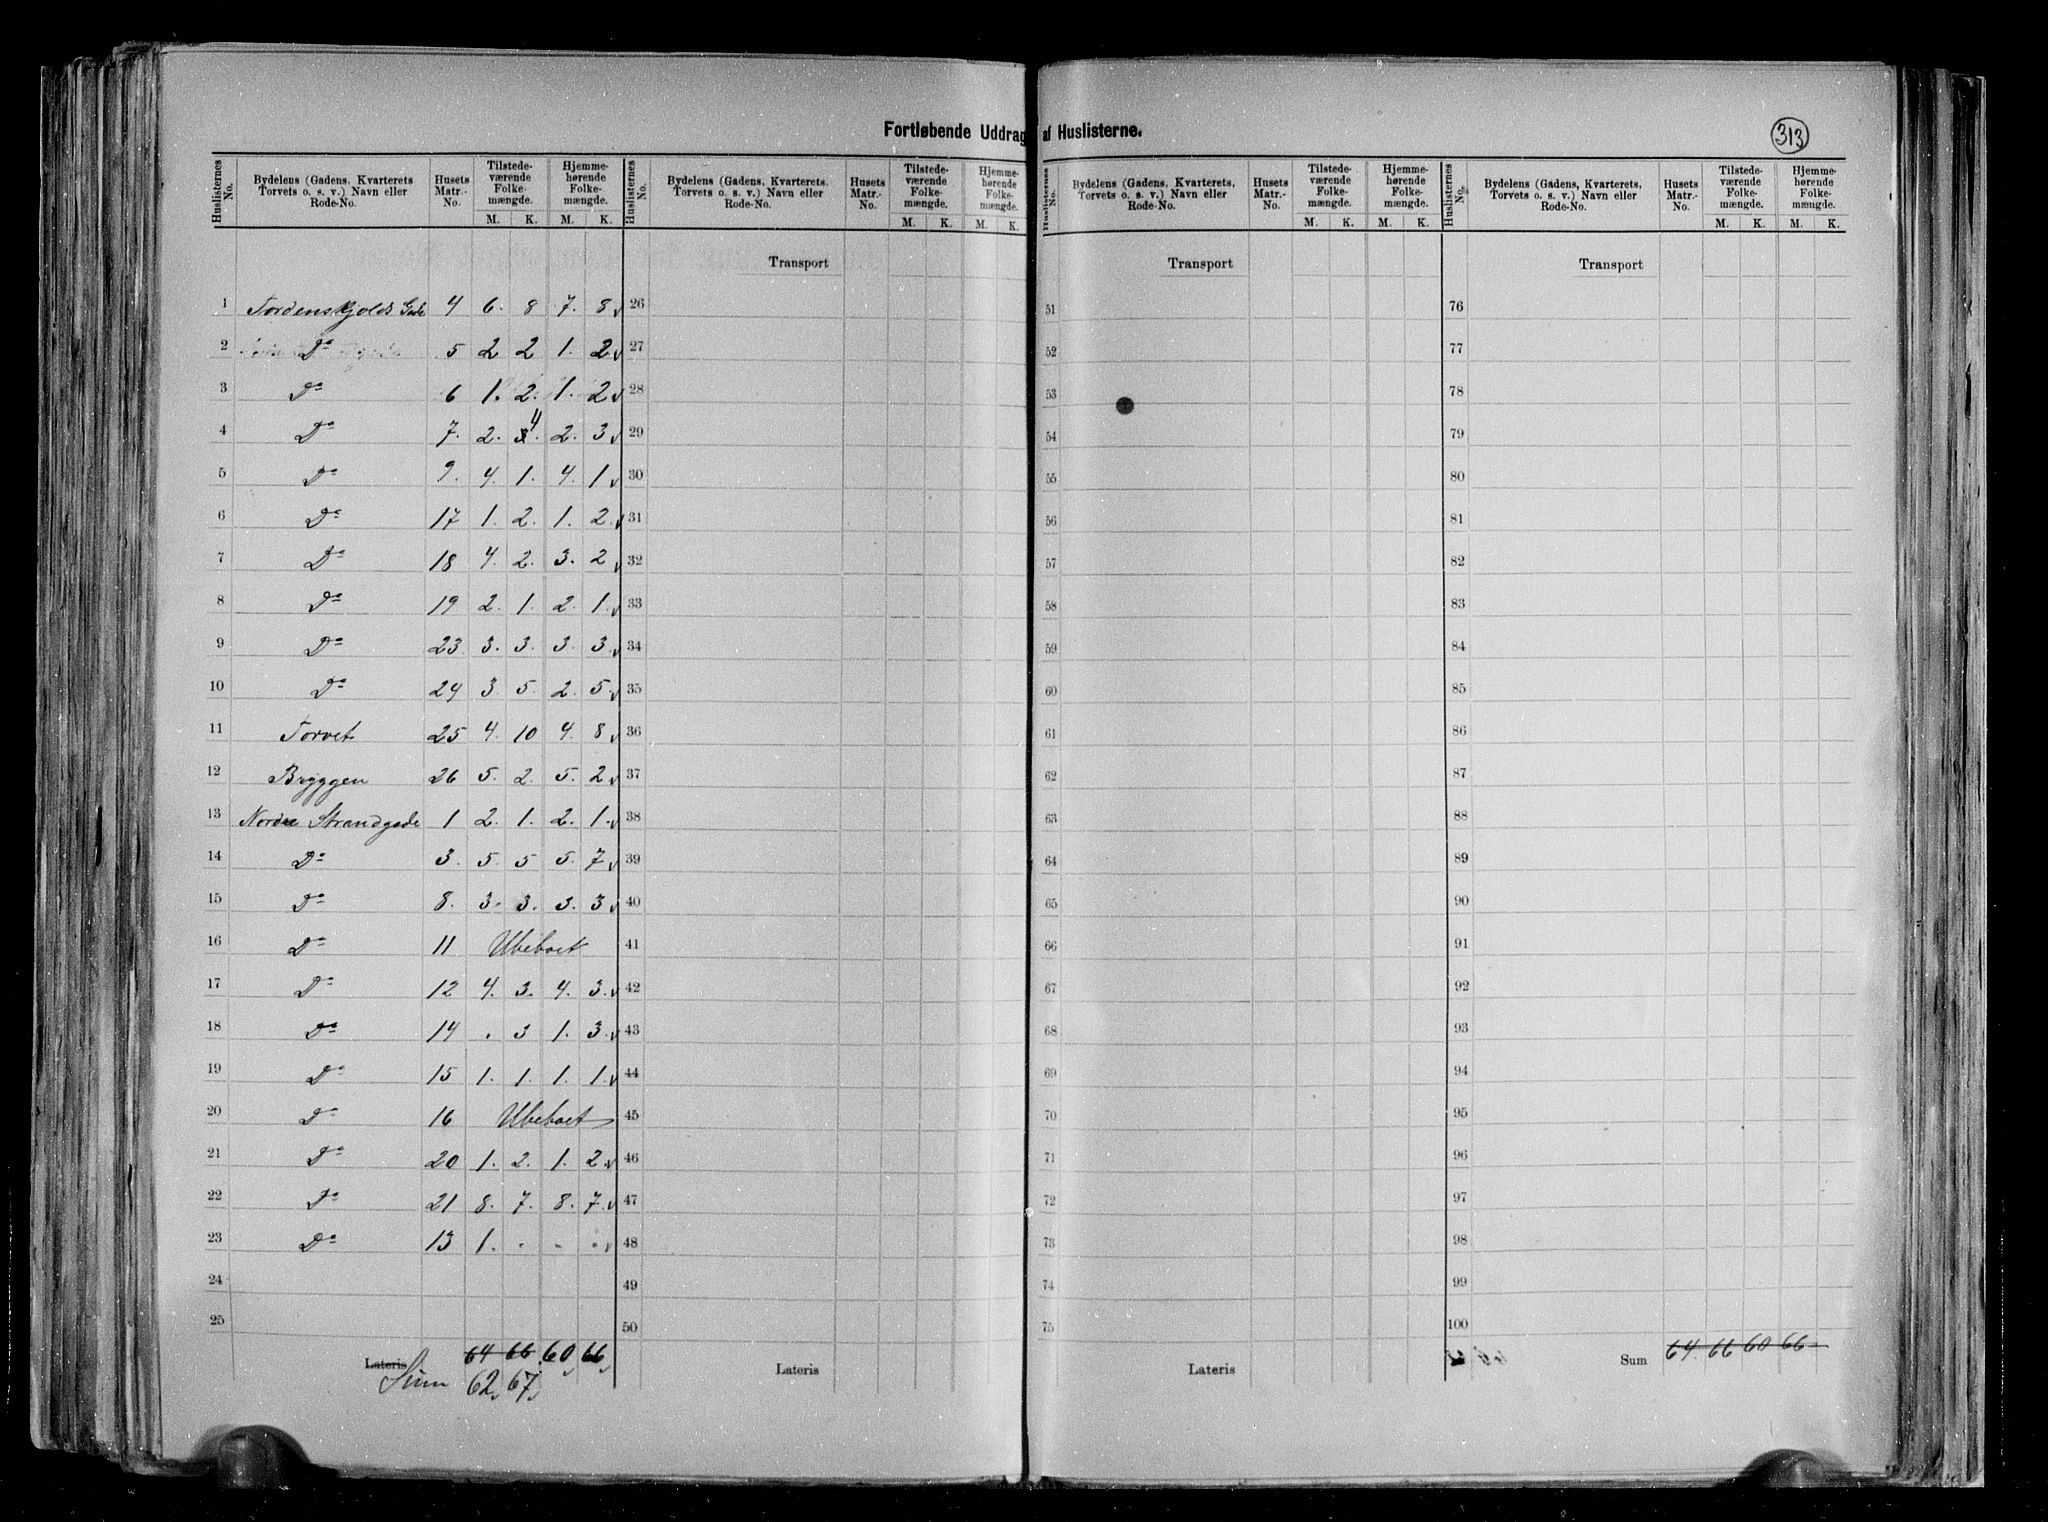 Fortløbende Uddrag af Huslisterne.
313
Huslisternes No. Bydelens (Gadens, Kvarterets Torvets o. s. v.) Navn eller Rode-No. Husets Matr.-No. Tilstedeværende Folkemængde. M. K. Hjemmehørende Folkemængde. M. K.
Huslisternes No. Bydelens (Gadens, Kvarterets, Torvets o. s. v.) Navn eller Rode-No. Husets Matr.-No. Tilstedeværende Folkemængde. M. K. Hjemmehørende Folkemængde. M. K.
Huslisternes No. Bydelens (Gadens, Kvarterets, Torvets o. s. v.) Navn eller Rode-No. Husets Matr.-No. Tilstedeværende Folkemængde. M. K. Hjemmehørende Folkemængde. M. K.
Huslisternes No. Bydelens (Gadens, Kvarterets, Torvets o. s. v.) Navn eller Rode-No. Husets Matr.-No. Tilstedeværende Folkemængde. M. K. Hjemmehørende Folkemængde. M. K.
Transport Transport Transport
1 Tordenskjolds Gade 4 6. 8 7. 8 26 51 76
2 Do 5 2 2 1. 2 27 52 77
3 Do 6 1. 2. 1. 2 28 53 78
4 Do 7. 2. 3 4. 2. 3 29 54 79
5 Do 9. 4. 1. 4. 1 30 55 80
6 Do 17 1. 2. 1. 2. 31 56 81
7 Do 18 4. 2. 3. 2 32 57 82
8 Do 19 2. 1. 2. 1. 33 58 83
9 Do 23. 3. 3. 3. 3. 34 59 84
10 Do 24 3. 5. 2. 5. 35 60 85
11 Torvet 25 4. 10 4. 8 36 61 86
12 Bryggen 26 5. 2. 5. 2 37 62 87
13 Nordre Strandgade 1 2. 1. 2. 1. 38 63 88
14 Do 3. 5. 5 5. 7 39 64 89
15 Do 8. 3. 3. 3. 3 40 65 90
16 Do 11 Ubeboet 41 66 91
17 Do 12 4. 3. 4. 3. 42 67 92
18 Do 14 . 3 1. 3. 43 68 93
19 Do 15 1. 1. 1. 1. 44 69 94
20 Do 16 Ubeboet 45 70 95
21 Do 20 1. 2. 1. 2. 46 71 96
22 Do 21 8. 7. 8. 7. 47 72 97
23 Do 13 1. . . . 48 73 98
24 49 74 99
25 50 75 100
Lateris 64 66 60 66 Lateris Lateris Sum 64. 66 60 66
Sum 62 67